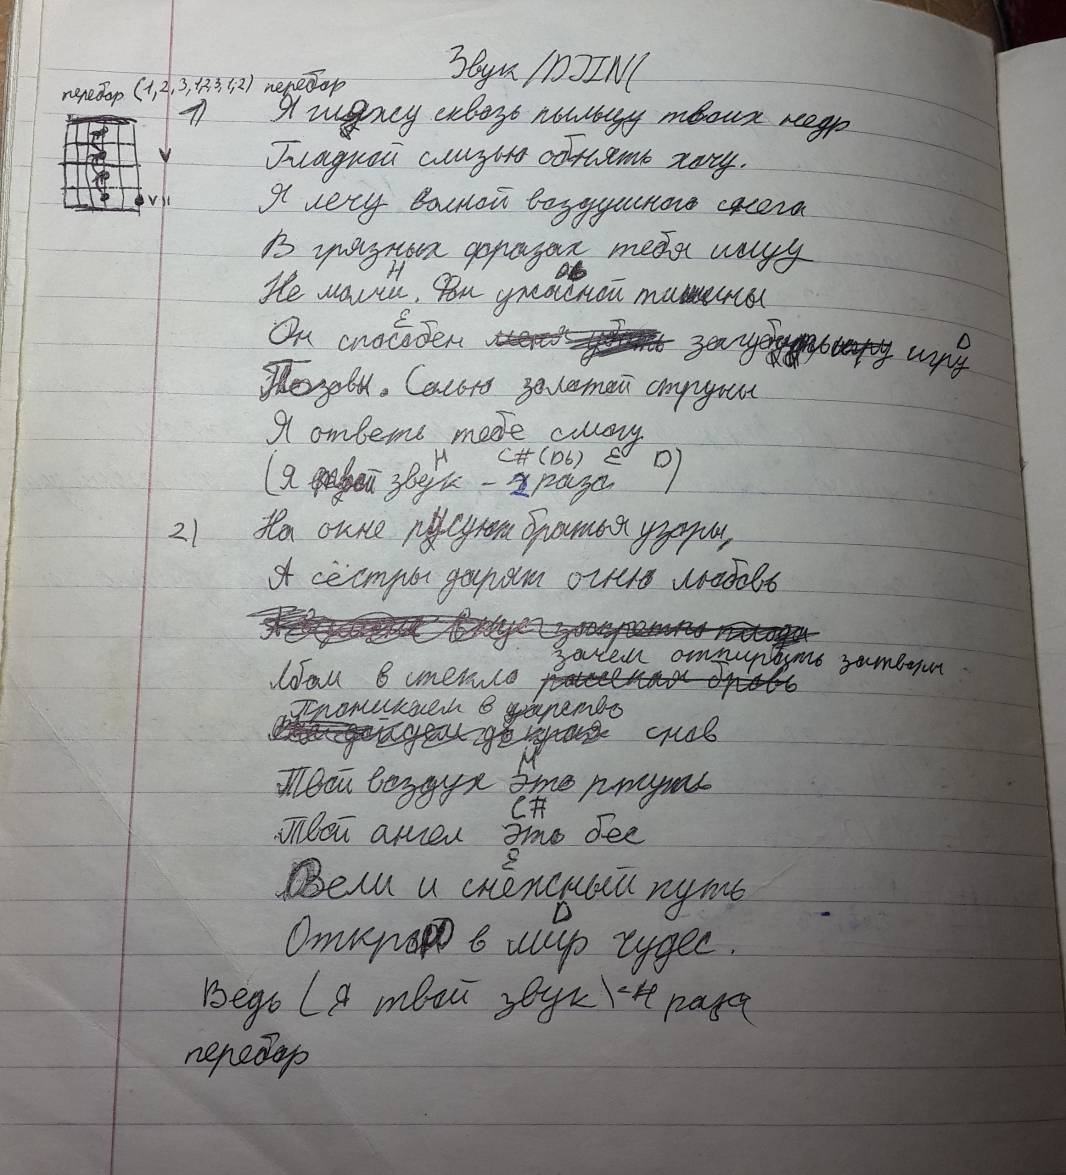 Звук /DJIN(
перебор (1,2,3,1,2,3,1,2) перебор
1) Я гляжу сквозь пыльцу твоих недр
Гладкой слизью обнять хочу.
Я лечу волной воздушного снега
В грязных фразах тебя ищу
H Db
Не молчи. Фон ужасной тишины
E D
Он способен загубить игру
Позовы. Солью золотой струны
Я ответь тебе смогу
H C# (Db) E D)
(Я твой звук - раза
2) На окне рисуют братья узоры,
А сёстры дарят огню любовь
зачем отпирать затворы
Лбом в стекло
Проникаем в царство
снов
H
Твой воздух это ртуть
C#
Твой ангел это бес
E
Вели и снежный путь
D
Открой в мир чудес.
Ведь (Я твой звук) -4 раза
перебор
VII